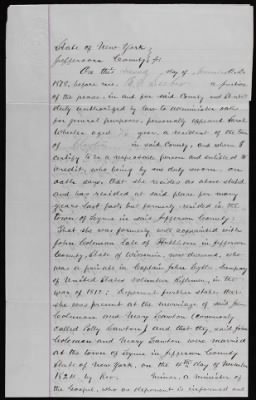 State of New York,
Jefferson County, ss
On this day of
1878, before me, a Justice
of the peace, in and for said County and State
duly authorized by law to administer oaths
for general purposes, personally appeared Sarah
Wheeler aged 76 years, a resident of the town
of Clayton, in said County, and whom I
certify to be a respectable person and entitled to
credit, who being by me duly sworn, on
oath says, that she resides as above stated
and has resided at said place for many
years last past but formerly resided in the
town of Lyme in said Jefferson County;
That she was formerly well acquainted with
John Coleman late of Hebron in Jefferson
County, State of Wisconsin, now deceased, who
was a private in Captain John Company
of United States Volunteer Riflemen, in the
war of 1812; Deponent further states that
she was present at the marriage of said John
Coleman and Mary Lawton (commonly
called Polly Lawton) and that they, said John
Coleman and Mary Lawton were married
at the town of Lyme in Jefferson County
State of New York, on the 11th day of
1824, by Rev. Miner, a minister of
the Gospel, who as deponent is informed and